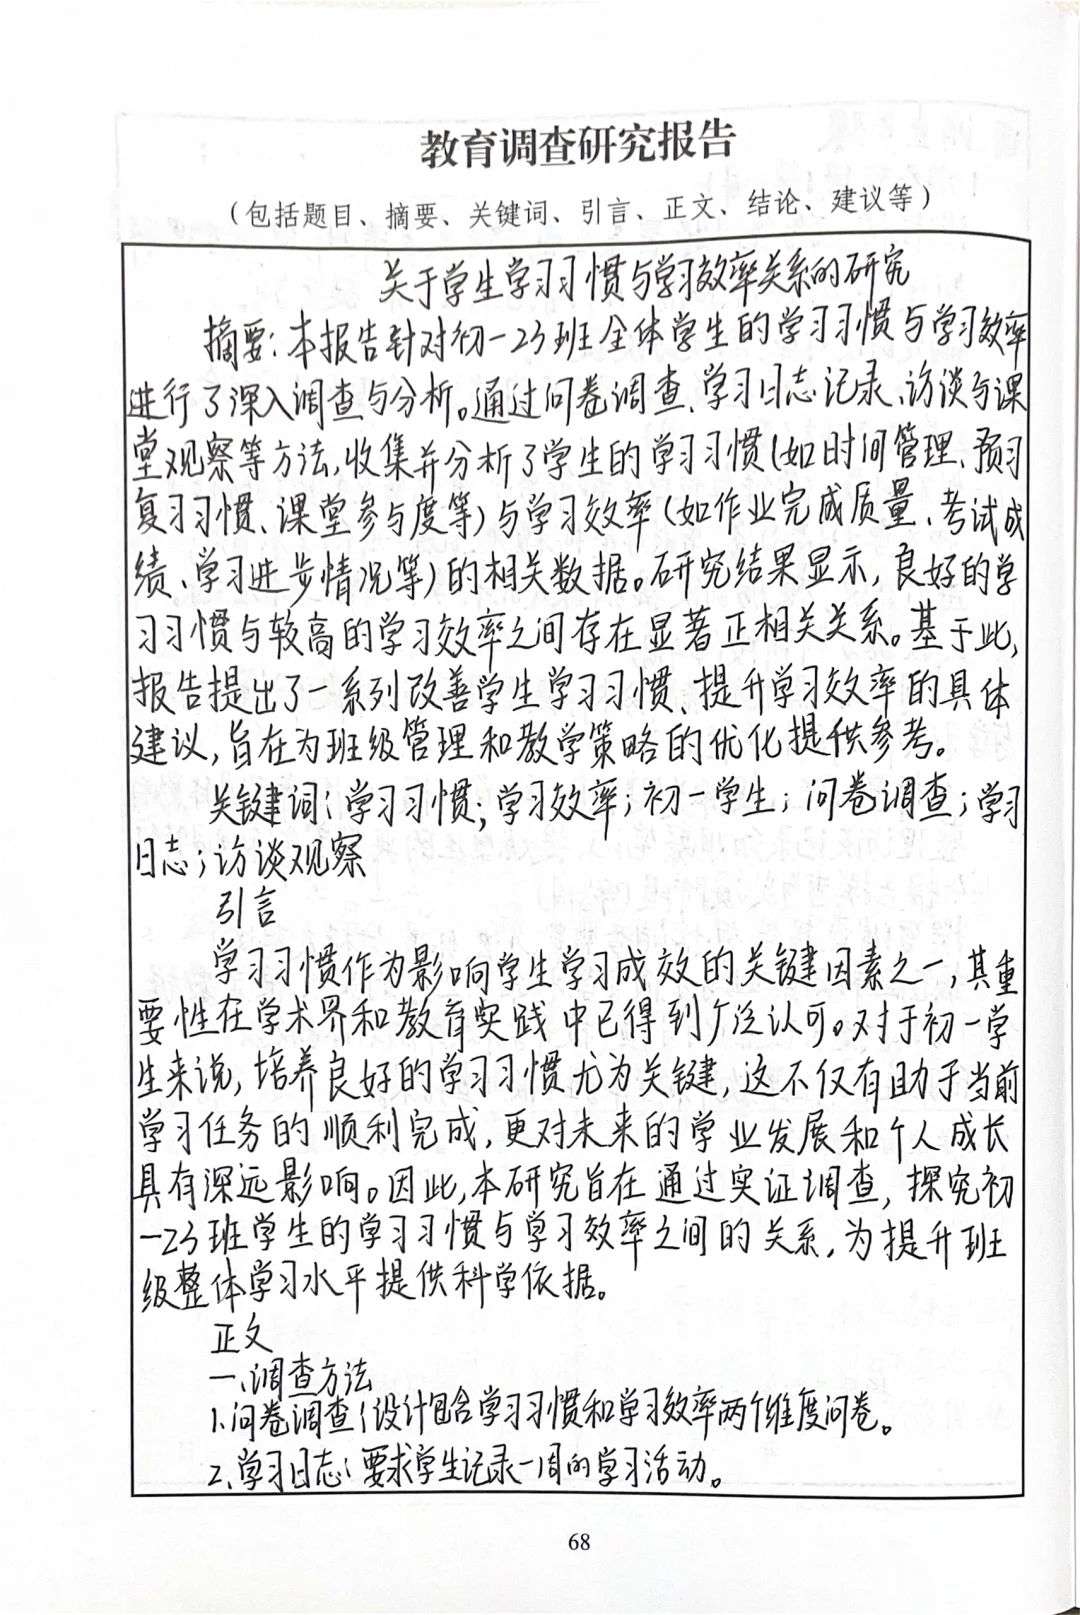 教育调查研究报告
（包括题目、摘要、关键词、引言、正文、结论、建议等）
关于学生学习习惯与学习效率关系的研究
摘要：本报告针对初一23班全体学生的学习习惯与学习效率
进行了深入调查与分析。通过问卷调查、学习日志记录、访谈与课
堂观察等方法，收集并分析了学生的学习习惯（如时间管理、预习
复习习惯、课堂参与度等）与学习效率（如作业完成质量、考试成
绩、学习进步情况等）的相关数据。研究结果显示，良好的学
习习惯与较高的学习效率之间存在显著正相关关系。基于此，
报告提出了一系列改善学生学习习惯、提升学习效率的具体
建议，旨在为班级管理和教学策略的优化提供参考。
关键词：学习习惯；学习效率；初一学生；问卷调查；学习
日志；访谈观察
引言
学习习惯作为影响学生学习成效的关键因素之一，其重
要性在学术界和教育实践中已得到广泛认可。对于初一学
生来说，培养良好的学习习惯尤为关键，这不仅有助于当前
学习任务的顺利完成，更对未来的学业发展和个人成长
具有深远影响。因此，本研究旨在通过实证调查，探究初
一23班学生的学习习惯与学习效率之间的关系，为提升班
级整体学习水平提供科学依据。
正文
一、调查方法
1.问卷调查：设计包含学习习惯和学习效率两个维度问卷。
2.学习日志：要求学生记录一周的学习活动。
68